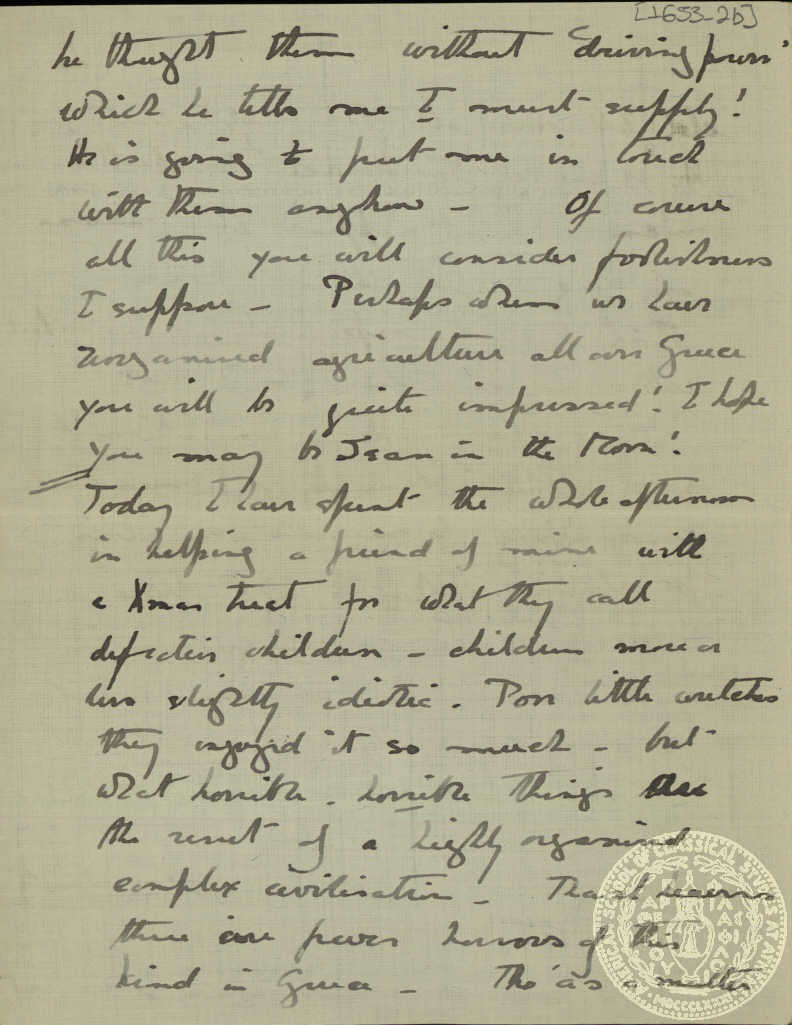 [1653-2b]
he thought them without 'driving power'
which he tells me I must supply!
He is going to put me in touch
with them anyhow - Of course
all this you will consider foolishness
I suppose - Perhaps when we have
reorganised agriculture all over Greece
you will be quite impressed! I hope
you may be Jean in the Moon!
Today I have spent the whole afternoon
in helping a friend of mine with
a Xmas treat for what they call
defective children - children more or
less slightly idiotic. Poor little wretches
they enjoyed it so much - but
what horrible - horrible things are
the result of a highly organised
complex civilisation - Thank heavens
there are fewer horrors of this
kind in Greece - Tho' as a matter
AMERICAN SCHOOL OF CLASSICAL STUDIES AT ATHENS
MDCCCLXXXI